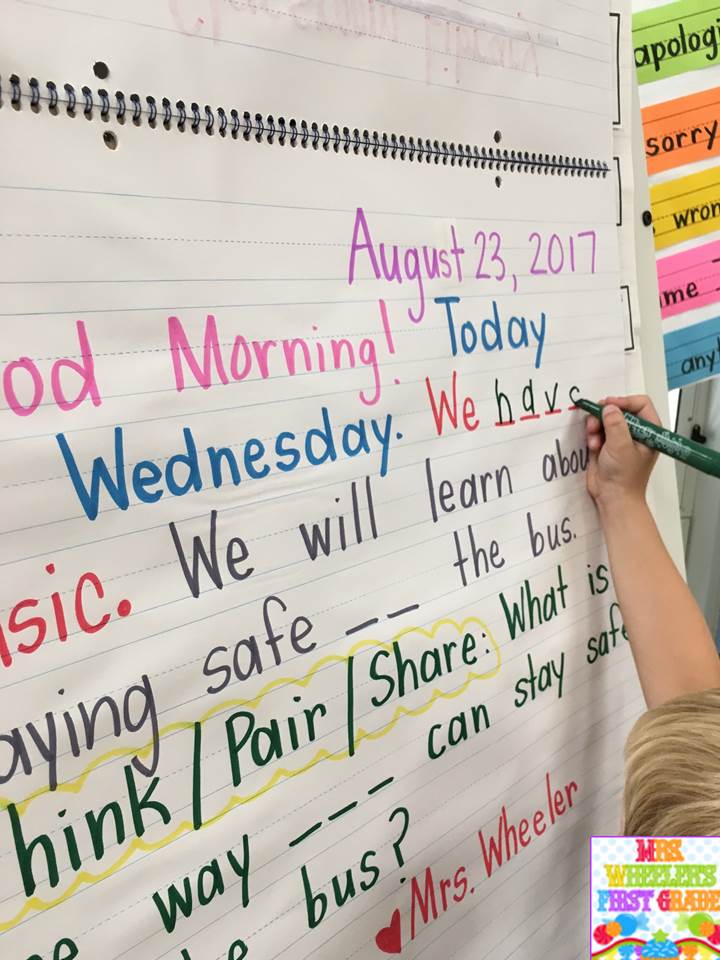 August 23, 2017
od Morning! Today
Wednesday. We hav
sic. We will learn abou
aying safe _ _ the bus.
hink / Pair / Share: What is
way _ _ _ can stay safe
bus?
Mrs. Wheeler
apologi
sorry
wron
me
any
MRS.
WHEELER'S
FIRST GRADE